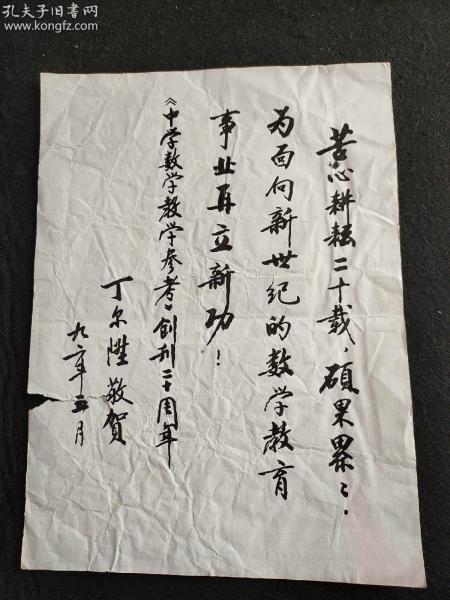 孔夫子旧书网
www.kongfz.com
苦心耕耘二十载，硕果累々．
为面向新世纪的数学教育
事业再立新功！
《中学数学教学参考》创刊二十周年
丁尔陞敬贺
九二年五月